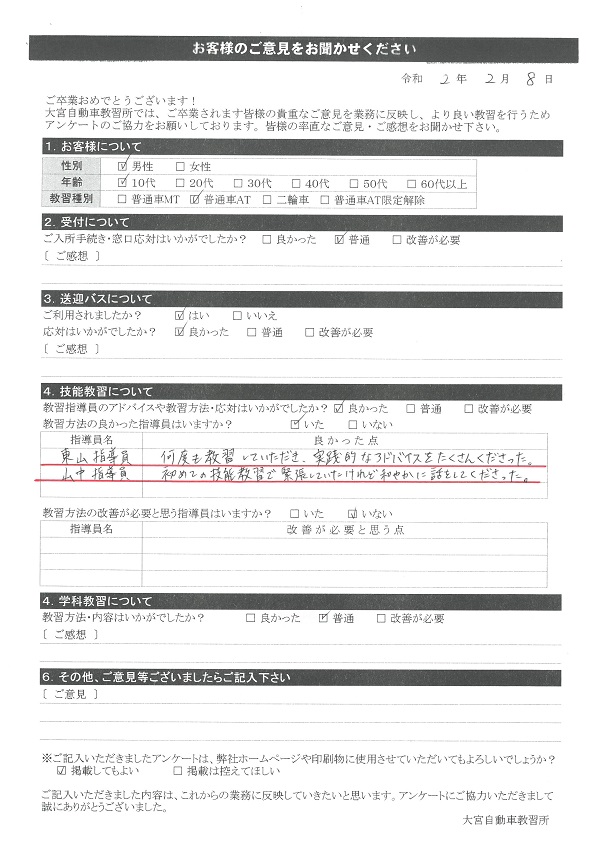 お客様のご意見をお聞かせください
令和 2 年 2 月 8 日
ご卒業おめでとうございます!
大宮自動車教習所では、ご卒業されます皆様の貴重なご意見を業務に反映し、より良い教習を行うため
アンケートのご協力をお願いしております。皆様の率直なご意見・ご感想をお聞かせ下さい。
1. お客様について
性別 ☑ 男性 □ 女性
年齢 ☑ 10代 □ 20代 □ 30代 □ 40代 □ 50代 □ 60代以上
教習種別 □ 普通車MT ☑ 普通車AT □ 二輪車 □ 普通車AT限定解除
2. 受付について
ご入所手続き・窓口応対はいかがでしたか? □ 良かった ☑ 普通 □ 改善が必要
[ ご感想 ]
3. 送迎バスについて
ご利用されましたか? ☑ はい □ いいえ
応対はいかがでしたか? ☑ 良かった □ 普通 □ 改善が必要
[ ご感想 ]
4. 技能教習について
教習指導員のアドバイスや教習方法・応対はいかがでしたか? ☑ 良かった □ 普通 □ 改善が必要
教習方法の良かった指導員はいますか? ☑ いた □ いない
指導員名 良かった点
東山指導員 何度も教習していただき、実践的なアドバイスをたくさんくださった。
山中指導員 初めての技能教習で緊張していたけれど和やかに話をしてくださった。
教習方法の改善が必要と思う指導員はいますか? □ いた ☑ いない
指導員名 改善が必要と思う点
4. 学科教習について
教習方法・内容はいかがでしたか? □ 良かった ☑ 普通 □ 改善が必要
[ ご感想 ]
6. その他、ご意見等ございましたらご記入下さい
[ ご意見 ]
※ご記入いただきましたアンケートは、弊社ホームページや印刷物に使用させていただいてもよろしいでしょうか?
☑ 掲載してもよい □ 掲載は控えてほしい
ご記入いただきました内容は、これからの業務に反映していきたいと思います。アンケートにご協力いただきまして
誠にありがとうございました。
大宮自動車教習所